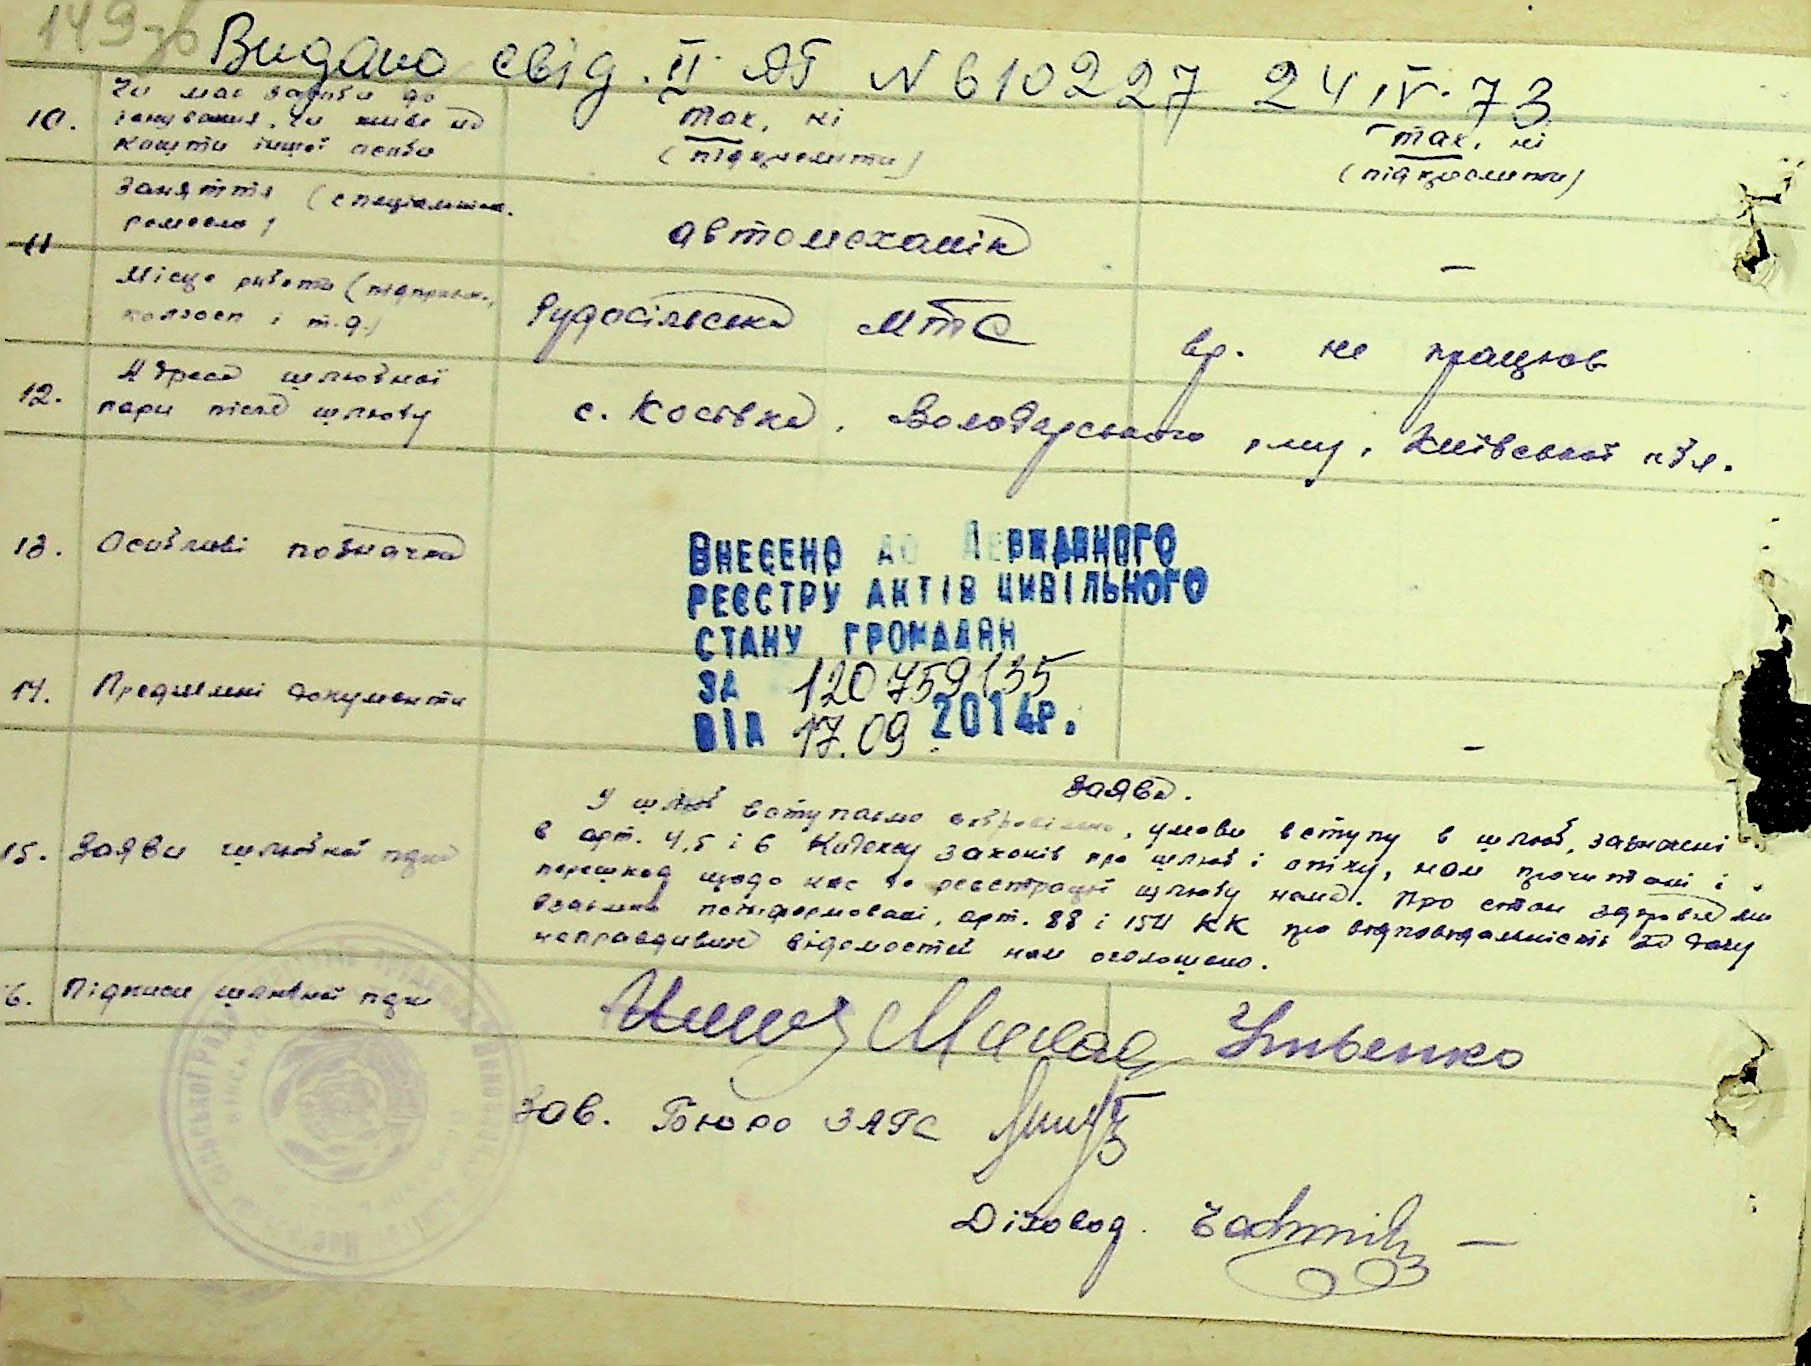 149зв
Видано свід. II АБ N 610227 24.IV.73
10.
Чи має засоби до
існування, чи живе на
кошти іншої особи
так, ні
(підкреслити)
так, ні
(підкреслити)
11
Заняття (спеціальність,
ремесло)
автомеханік
—
Місце роботи (підприєм.,
колгосп і т.д.)
Рудосільська МТС
вр. не працює
12.
Адреса шлюбної
пари після шлюбу
с. Косівка, Володарського р-ну, Київської обл.
13.
Особливі позначки
ВНЕСЕНО ДО ДЕРЖАВНОГО
РЕЄСТРУ АКТІВ ЦИВІЛЬНОГО
СТАНУ ГРОМАДЯН
ЗА 120759135
ВІД 17.09.2014р.
14.
Пред'явлені документи
—
15.
Заяви шлюбної пари
Заява.
У шлюб вступаємо добровільно, умови вступу в шлюб, зазначені
в арт. 4,5 і 6 Кодексу законів про шлюб і опіку, нам прочитані і
перешкод щодо нас до реєстрації шлюбу нема. Про стан здоров'я ми
взаємно поінформовані, арт. 88 і 154 КК про відповідальність за дачу
неправдивих відомостей нам оголошено.
16.
Підписи шлюбної пари
Зав. Бюро ЗАГС
Діловод.